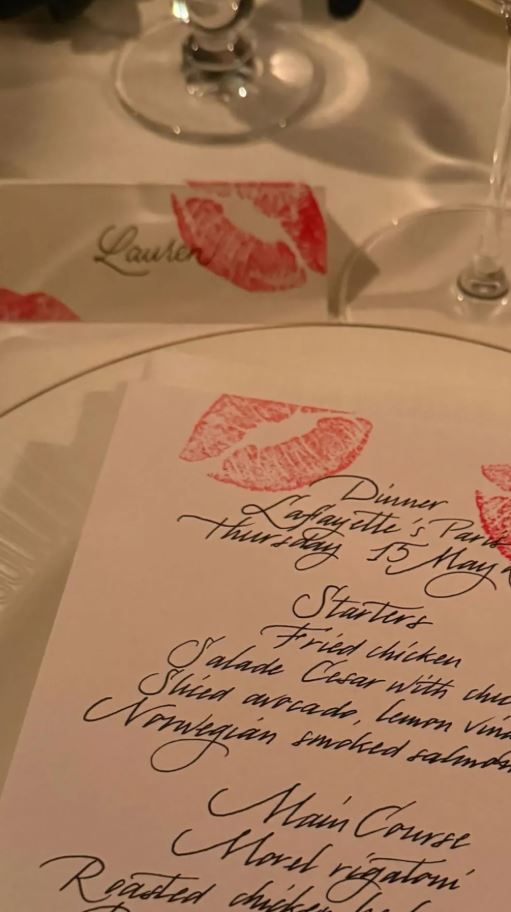 Lauren
Dinner
Lafayette's Paris
Thursday 15 May
Starters
Fried chicken
Salade César with
Sliced avocado, lemon
Norwegian smoked salmon
Main Course
Morel rigatoni
Roasted chicken